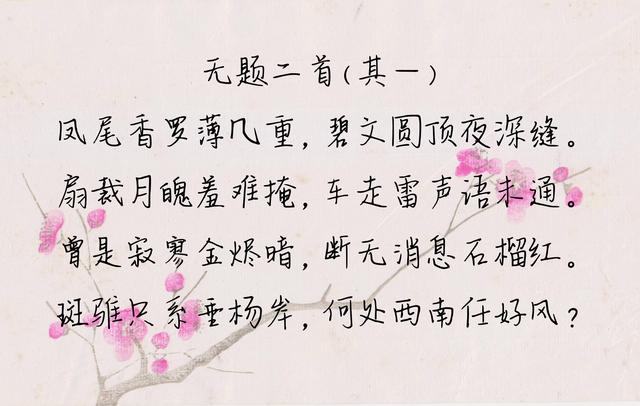 无题二首(其一)
凤尾香罗薄几重，碧文圆顶夜深缝。
扇裁月魄羞难掩，车走雷声语未通。
曾是寂寥金烬暗，断无消息石榴红。
斑骓只系垂杨岸，何处西南任好风？